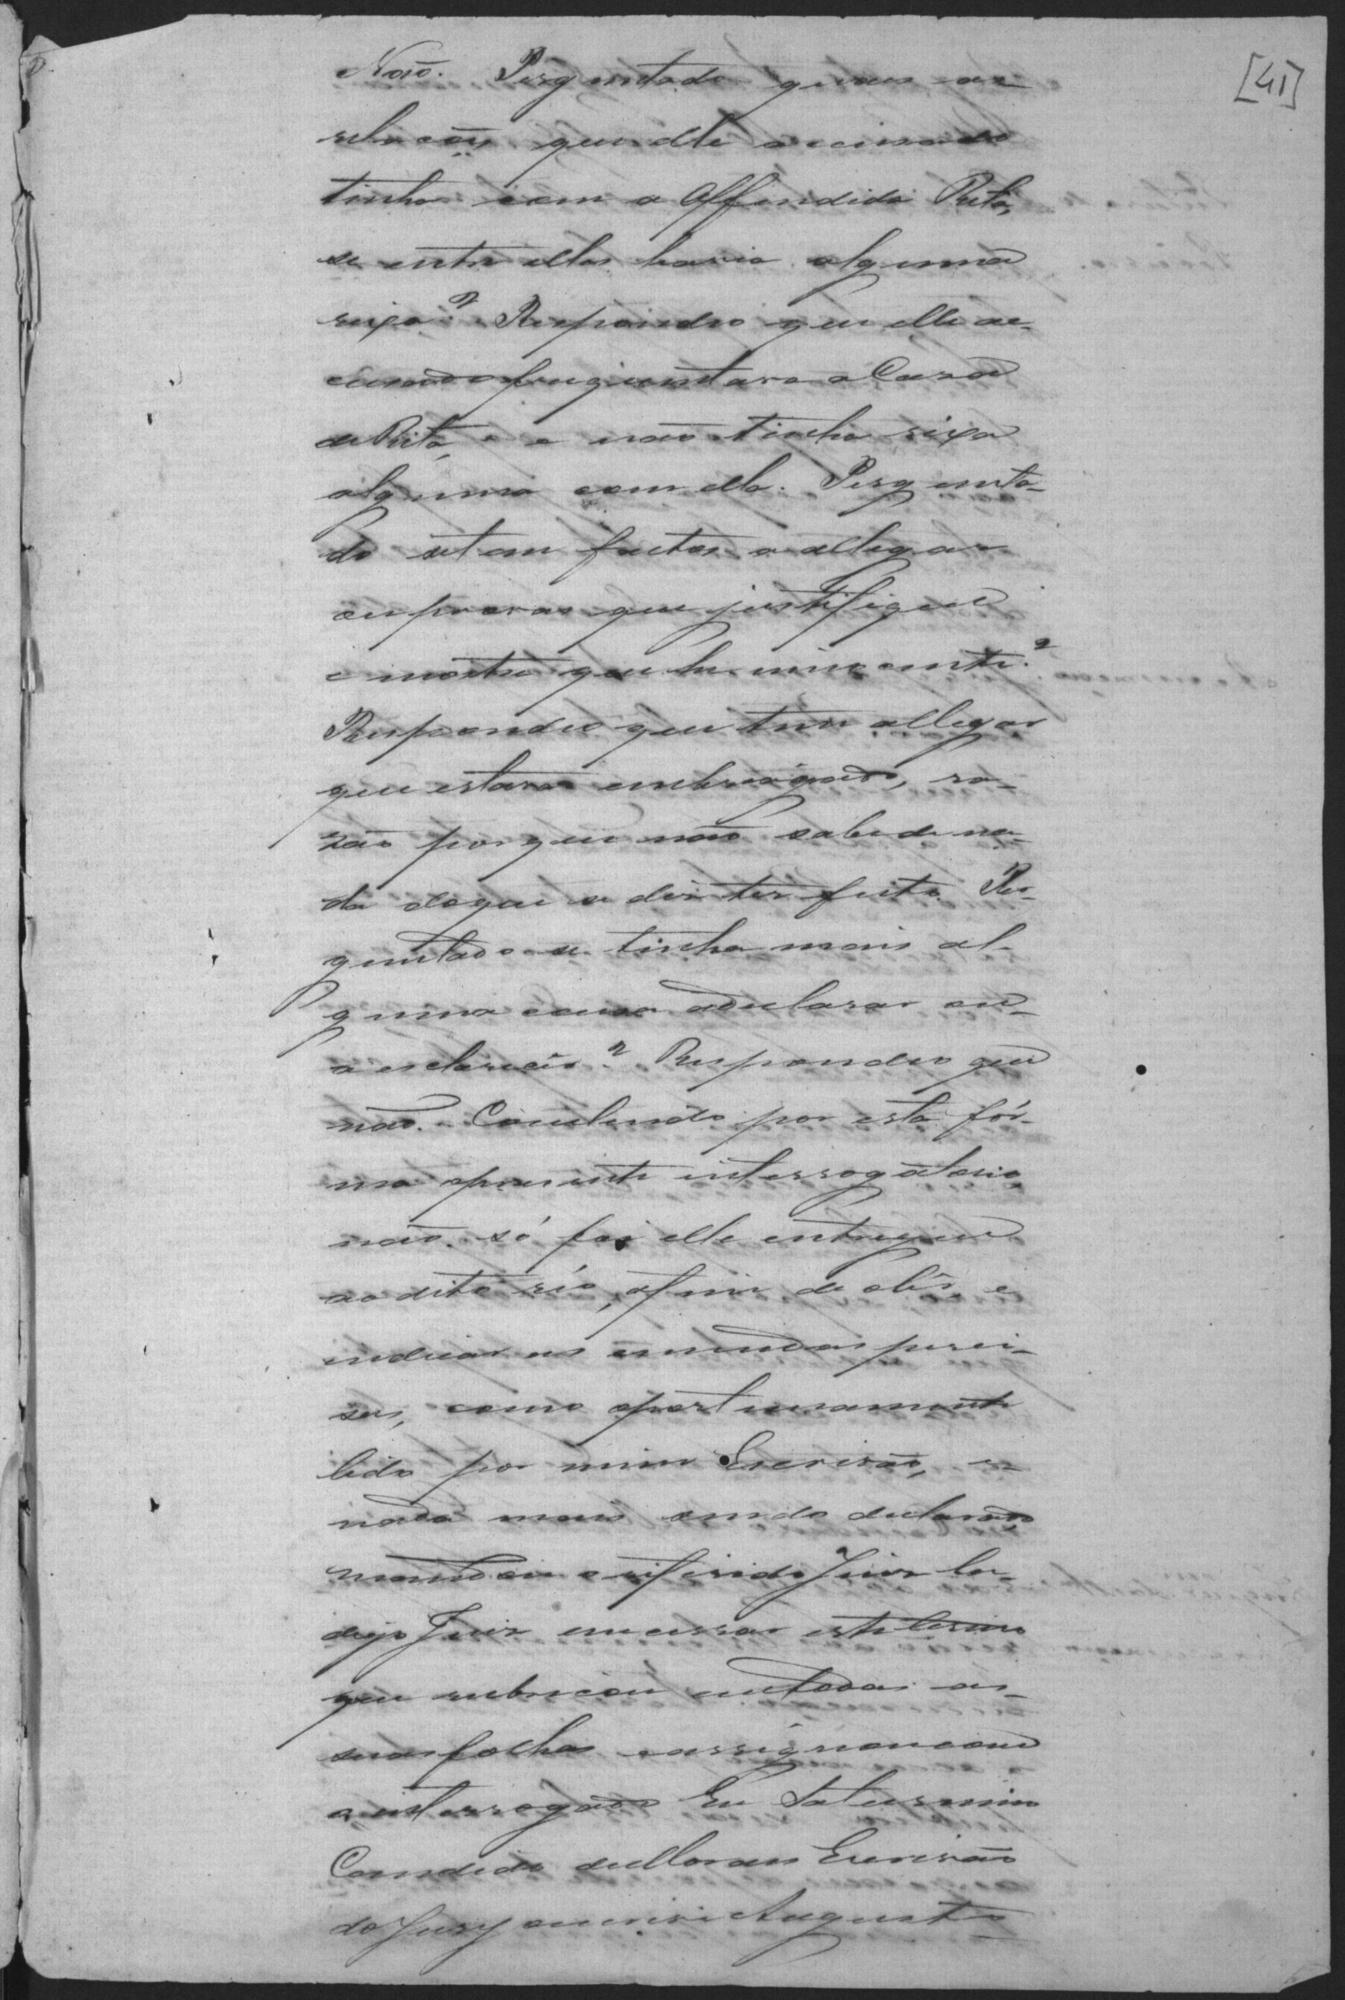 [41]
Não. Perguntado quaes as
relações que elle accusado
tinha com a Offendida Rita,
se entre elles havia alguma
rixa? Respondeo que elle ac-
cusado frequentava a Casa
de Rita, e não tinha rixa
alguma com ella. Pergunta-
do se tem factos a allegar
ou provas que justifique
e mostre que he innocente?
Respondeo que tem allegar
que estava embriagado, ra-
zão porque não sabe de na-
da do que se diz ter feito. Per-
guntado se tinha mais al-
guma cousa a declarar ou
a esclarecer? Respondeo que
não. Concluindo por esta fór-
ma o presente interrogatorio,
não só foi elle entregue
ao dito réo, afim de o lêr, e
indicar as emendas preci-
sas, como opportunamente
lido por mim Escrivão, e
nada mais sendo declarado
mandou o referido Juiz la-
digo Juiz encerrar este termo
que rubricou em todas as
suas folhas e assignou com
o interrogado Eu Saturnino
Candido de Moraes Escrivão
do Jury escrevi Augusto